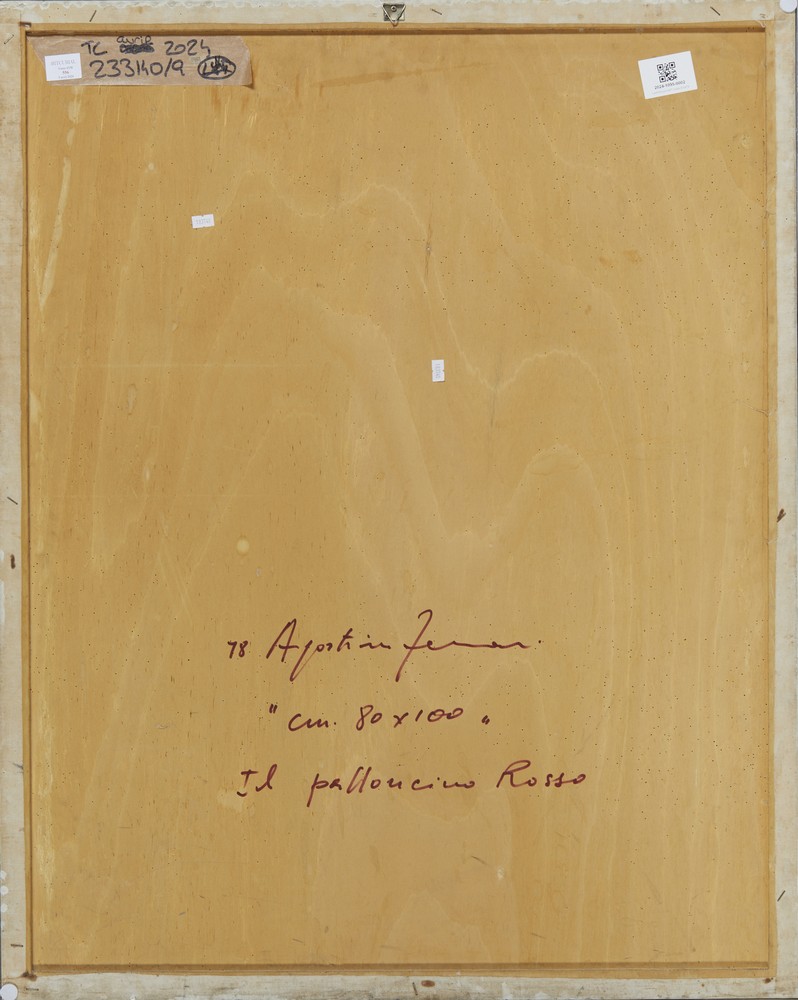 TC 2024
233140/9
78 Agostino Ferrari
" cm. 80x100 "
Il palloncino Rosso